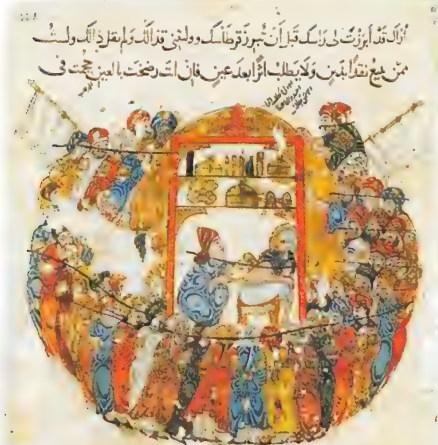 اراك قد ابرزت لى راسك قبل ان تبرز قرطاسك ووليتنى قذالك ولم تقل ذالك ولست
ممن يبيع نقدا بدين ولا يطلب اثرا بعد عين فان انت رضخت بالعين حجمت فى